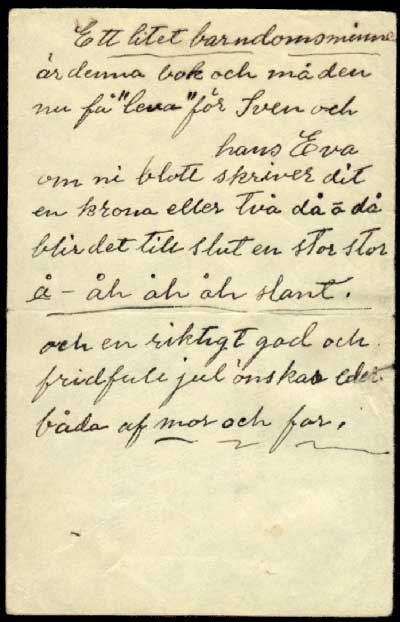 Ett litet barndomsminne
är denna bok och må den
nu få "leva" för Sven och
hans Eva
om ni blott skriver dit
en krona eller två då å då
blir det till slut en stor stor
å - åh åh åh slant.
och en riktigt god och
fridfull jul önskas eder
båda af mor och far.